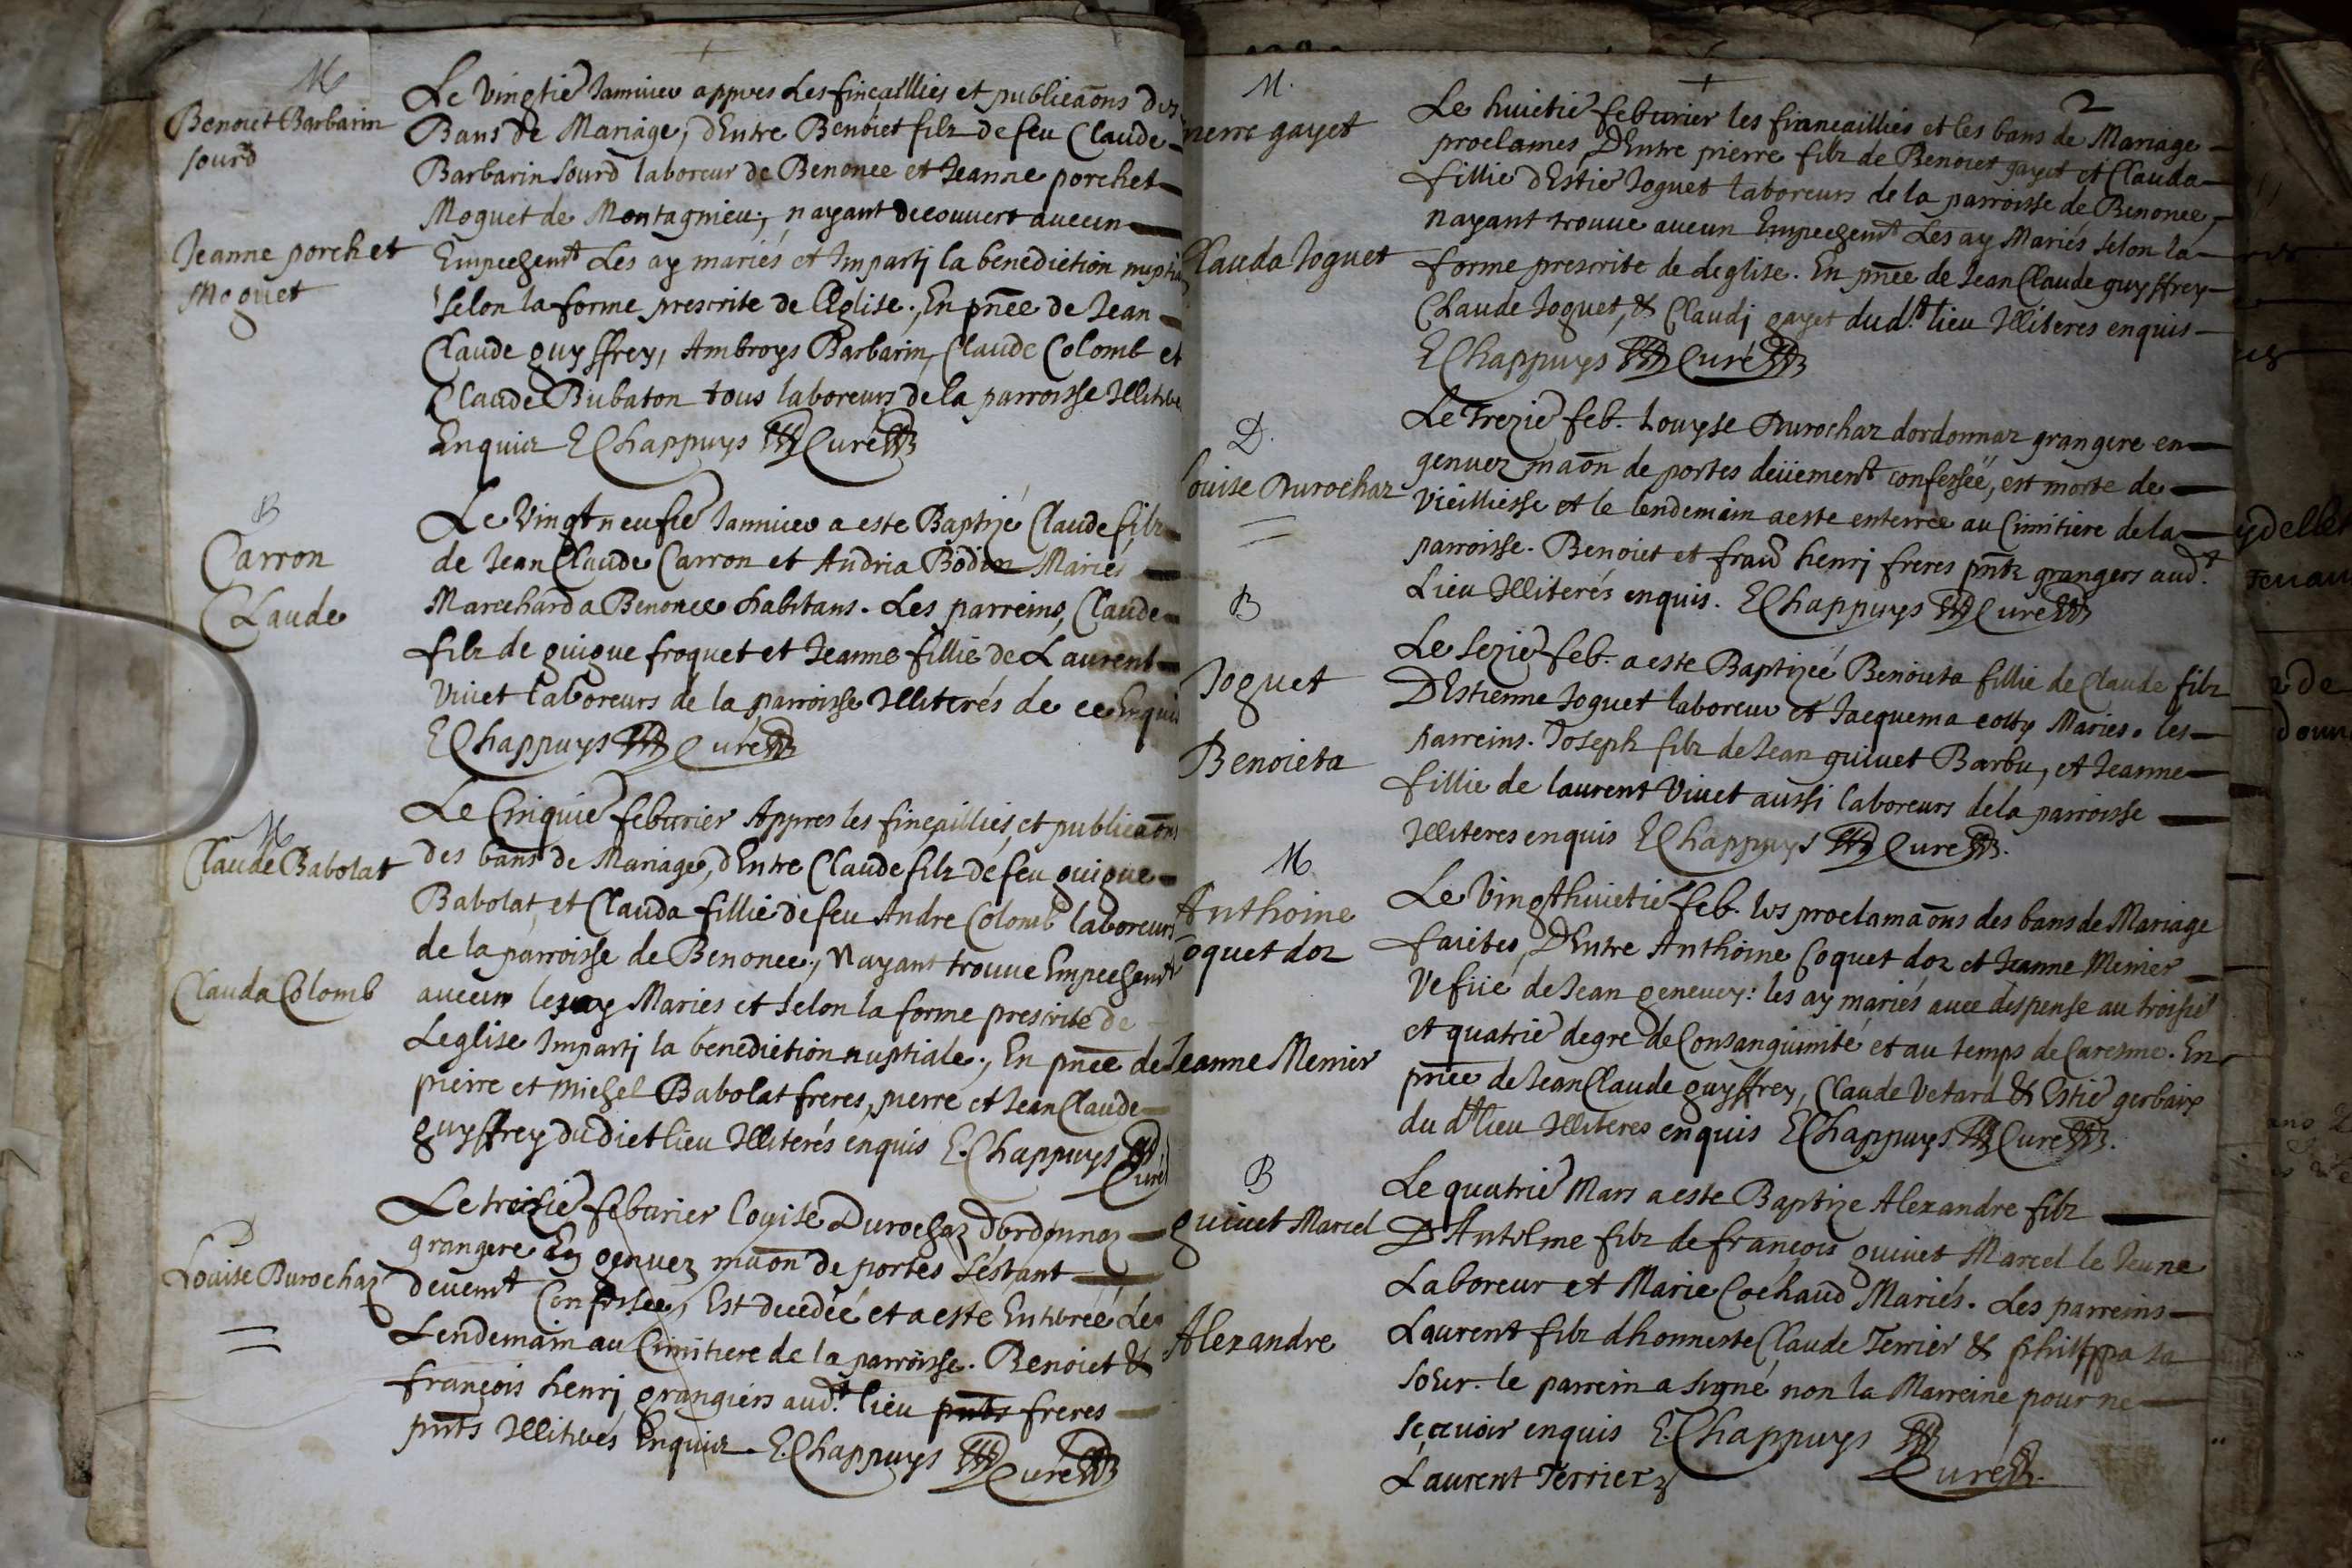 M
Benoiet Barbarin
sourd
Jeanne porchet
Moguet
Le Vingtie Januier appres Les fincaillies et publicaõns des
Bans de Mariage, dEntre Benoiet filz de feu Claude
Barbarin sourd laboreur de Benonce et Jeanne porchet
Moguet de Montagnieu, nayant decouuert aucun
Empechemt Les ay mariés et Imparti la benediction nuptia
selon la forme prescrite de l'Eglise. En pñce de Jean
Claude guyffrey, Ambroys Barbarin, Claude Colomb et
Claude Bubaton tous laboreurs de la parroisse Illiteres
Enquiz EChappuys Curé
B
Carron
CLaude
Le Vingt neufie Januier a este Baptizé Claude filz
de Jean Claude Carron et Andria Bodin Mariés
Marechard a Benonce habitans. Les parreins, Claude
filz de guigue froquet et Jeanne fillie de Laurent
Viuet laboreurs de la parroisse Illiterés de ce Enquis
EChappuys Curé
M
Claude Babolat
Clauda Colomb
Le Cinquie feburier Appres les fincaillies, et publicaõns
des bans de Mariage, dEntre Claude filz de feu guigue
Babolat et Clauda fillie de feu Andre Colomb laboreurs
de la parroisse de Benonce, Nayant trouue Empechemt
aucun les ay Mariés et selon la forme prescrite de
Leglise Imparti la benediction nuptiale, En pñce de
pierre et Michel Babolat freres, pierre et Jean Claude
guyffrey du diet lieu Illiterés enquis E.Chappuys
Curé
D
Louise Durochaz
Le troisie feburier Louise Durochaz dordonnaz
grangere En genuez maõn de portes s'estant
deuemt Confessee, Est decedée et a este Enterrée Le
Lendemain au Cimitiere de la parroisse. Benoiet &
françois henri grangiers audt lieu pnts freres
pnts Illiterés Enquiz. E.Chappuys Curé
2
M.
pierre gayet
Clauda Joguet
Le huictie feburier les fiancaillies et les bans de Mariage
proclames, DEntre pierre filz de Benoiet gayet et Clauda
fillie dEstie Joguet laboreurs de la parroisse de Benonce,
nayant trouue aucun Empechemt Les ay Mariés selon la
forme prescrite de leglise. En pñce de Jean Claude guyffrey
CLaude Joguet, & Claudj gayet dudt lieu Illiteres enquis
EChappuys Curé
D.
Louise Durochaz
Le Trezie feb. Louyse Durochaz dordonnaz grangere en
genuez maõn de portes deüement confessée, est morte de
Vieilliesse et le lendemain a este enterrée au Cimitiere de la
parroisse. Benoiet et frans henrj freres pnts grangers audt
Lieu Illiterés enquis. EChappuys Curé
B
Joguet
Benoieta
Le sezie feb. a este Baptizée Benoieta fillie de Claude filz
DEstienne Joguet laboreur et Jacquema Mariés. les
parreins. Joseph filz de Jean guiuet Barbu, et Jeanne
fillie de laurent Viuet aussi laboreurs de la parroisse
Illiteres enquis EChappuys Curé.
M
Anthoine
Coquet doz
Jeanne Menier
Le Vingthuictie feb. les proclamaõns des bans de Mariage
faictes, DEntre Anthoine Coquet doz et Jeanne Menier
Vefue de Jean geneuey: les ay mariés auec dispense au troisie
et quatrie degre de Consanguinité et au temps de Caresme. En
pñce de Jean Claude guyffrey, Claude Vetard & Estie gerbaix
du dt lieu Illiteres enquis EChappuys Curé.
B
guiuet Marcel
Alexandre
Le quatrie Mars a este Baptize Alexandre filz
DAntelme filz de françois guiuet Marcel le Jeune
Laboreur et Marie Cochaud Mariés. Les parreins
Laurent filz dhonneste Claude Terrier & philippa sa
soeur. le parrein a signé non la Marreine pour ne
sçauoir enquis E.Chappuys
Curé.
Laurent Terrier